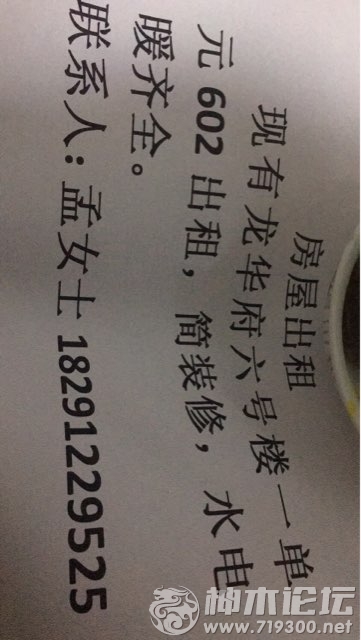 房屋出租
现有龙华府六号楼一单
元 602 出租，简装修，水电
暖齐全。
联系人: 孟女士 18291229525
神木论坛
www.719300.net